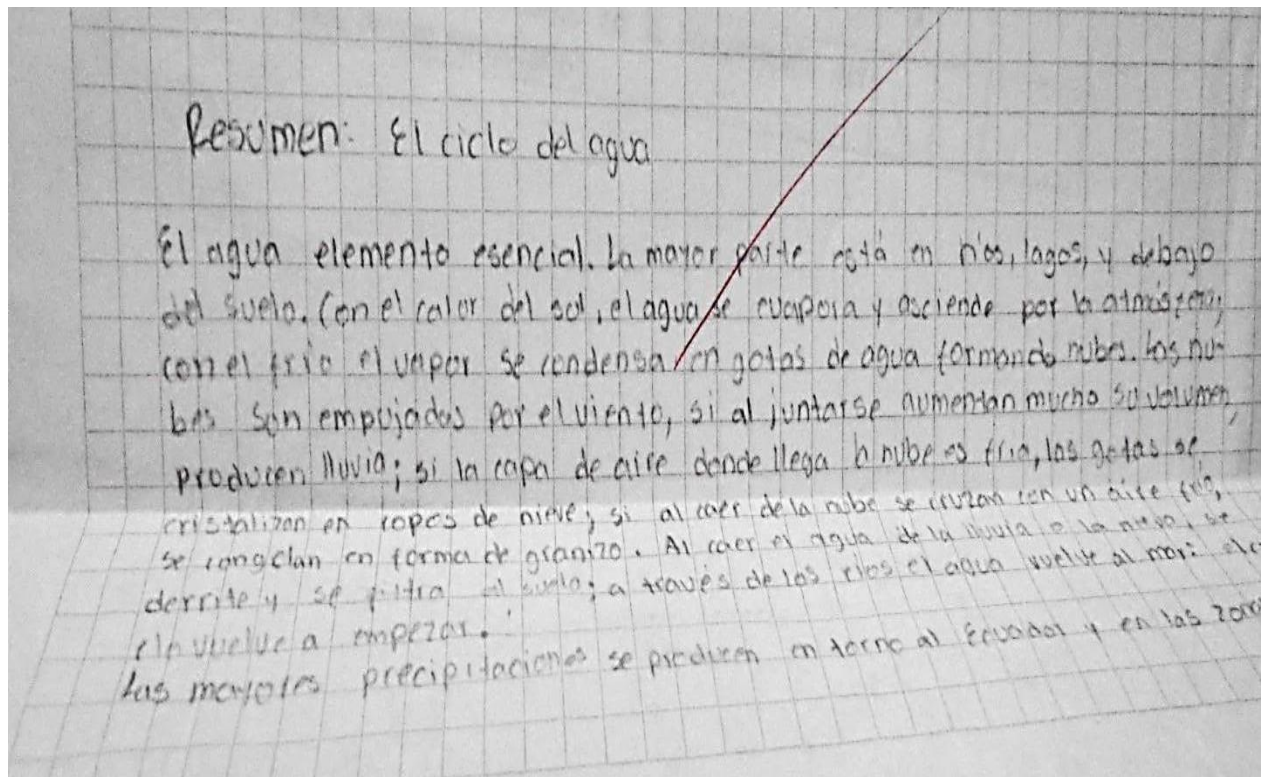 Resumen: El ciclo del agua
El agua elemento esencial. La mayor parte está en ríos, lagos, y debajo
del suelo. Con el calor del sol, el agua se evapora y asciende por la atmósfera,
con el frío el vapor se condensa en gotas de agua formando nubes. Las nu
bes son empujadas por el viento, si al juntarse aumentan mucho su volumen,
producen lluvia; si la capa de aire donde llega la nube es fria, las gotas se
cristalizan en copos de nieve; si al caer de la nube se cruzan con un aire frío,
se congelan en forma de granizo. Al caer el agua de la lluvia o la nieve, se
derrite y se filtra al suelo; a través de los rios el agua vuelve al mar: el ci
clo vuelve a empezar.
Las mayores precipitaciones se producen en torno al Ecuador y en las